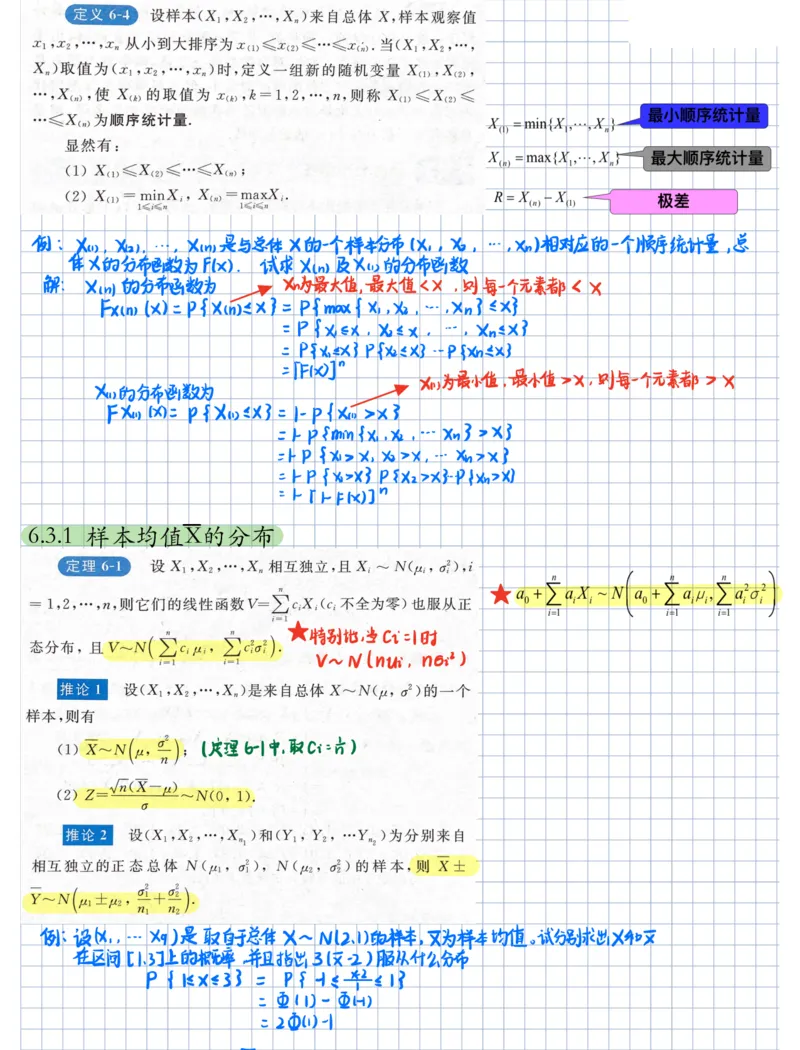 定义 6-4 设样本(X₁,X₂,…,Xₙ)来自总体 X,样本观察值
x₁,x₂,…,xₙ 从小到大排序为 x₍₁₎≤x₍₂₎≤…≤x₍ₙ₎.当(X₁,X₂,…,
Xₙ)取值为(x₁,x₂,…,xₙ)时,定义一组新的随机变量 X₍₁₎,X₍₂₎,
…,X₍ₙ₎,使 X₍ₖ₎的取值为 x₍ₖ₎,k=1,2,…,n,则称 X₍₁₎≤X₍₂₎≤
…≤X₍ₙ₎为顺序统计量.
显然有:
(1) X₍₁₎≤X₍₂₎≤…≤X₍ₙ₎;
(2) X₍₁₎=min Xᵢ, X₍ₙ₎=max Xᵢ.
1≤i≤n 1≤i≤n
X₍₁₎=min{X₁,…,Xₙ} 最小顺序统计量
X₍ₙ₎=max{X₁,…,Xₙ} 最大顺序统计量
R=X₍ₙ₎−X₍₁₎ 极差
例: X₍₁₎, X₍₂₎, …, X₍ₙ₎是与总体 X的一个样本分布(X₁, X₂, …, Xₙ)相对应的一个顺序统计量,总
体X的分布函数为F(x). 试求X₍ₙ₎及X₍₁₎的分布函数
解: X₍ₙ₎的分布函数为 Xₙ为最大值,最大值<X,则每一个元素都<X
Fx₍ₙ₎(x)=P{X₍ₙ₎≤x}=P{max{X₁,X₂,…,Xₙ}≤x}
=P{X₁≤x, X₂≤x, …, Xₙ≤x}
=P{X₁≤x}P{X₂≤x}…P{Xₙ≤x}
=[F(x)]ⁿ
X₍₁₎为最小值,最小值>X,则每一个元素都>X
X₍₁₎的分布函数为
FX₍₁₎(x)=P{X₍₁₎≤x}=1-P{X₍₁₎>x}
=1-P{min{X₁,X₂,…Xₙ}>x}
=1-P{X₁>x, X₂>x,…Xₙ>x}
=1-P{X₁>x}P{X₂>x}…P{Xₙ>x}
=1-[1-F(x)]ⁿ
6.3.1 样本均值X̄的分布
定理 6-1 设 X₁,X₂,…,Xₙ 相互独立,且 Xᵢ~N(μᵢ,σᵢ²),i
=1,2,…,n,则它们的线性函数V=∑ᵢ₌₁ⁿcᵢXᵢ(cᵢ不全为零)也服从正
态分布,且V~N(∑ᵢ₌₁ⁿcᵢμᵢ,∑ᵢ₌₁ⁿcᵢ²σᵢ²).
★ a₀+∑ᵢ₌₁ⁿaᵢXᵢ~N(a₀+∑ᵢ₌₁ⁿaᵢμᵢ,∑ᵢ₌₁ⁿaᵢ²σᵢ²)
★特别地,当Ci=1时
V~N(nμi, nσi²)
推论 1 设(X₁,X₂,…,Xₙ)是来自总体 X~N(μ,σ²)的一个
样本,则有
(1) X̄~N(μ,σ²/n); (定理6-1中,取Ci=1/n)
(2) Z=√n(X̄−μ)/σ~N(0,1).
推论 2 设(X₁,X₂,…,Xₙ₁)和(Y₁,Y₂,…Yₙ₂)为分别来自
相互独立的正态总体 N(μ₁,σ₁²),N(μ₂,σ₂²)的样本,则 X̄±
Ȳ~N(μ₁±μ₂,σ₁²/n₁+σ₂²/n₂).
例:设(X₁,…X₉)是取自于总体X~N(2,1)的样本,X̄为样本均值。试分别求出X和X̄
在区间[1,3]上的概率,并且指出3(X̄-2)服从什么分布
P{1≤X≤3} = P{-1≤(X-2)/1≤1}
=Φ(1)-Φ(-1)
=2Φ(1)-1